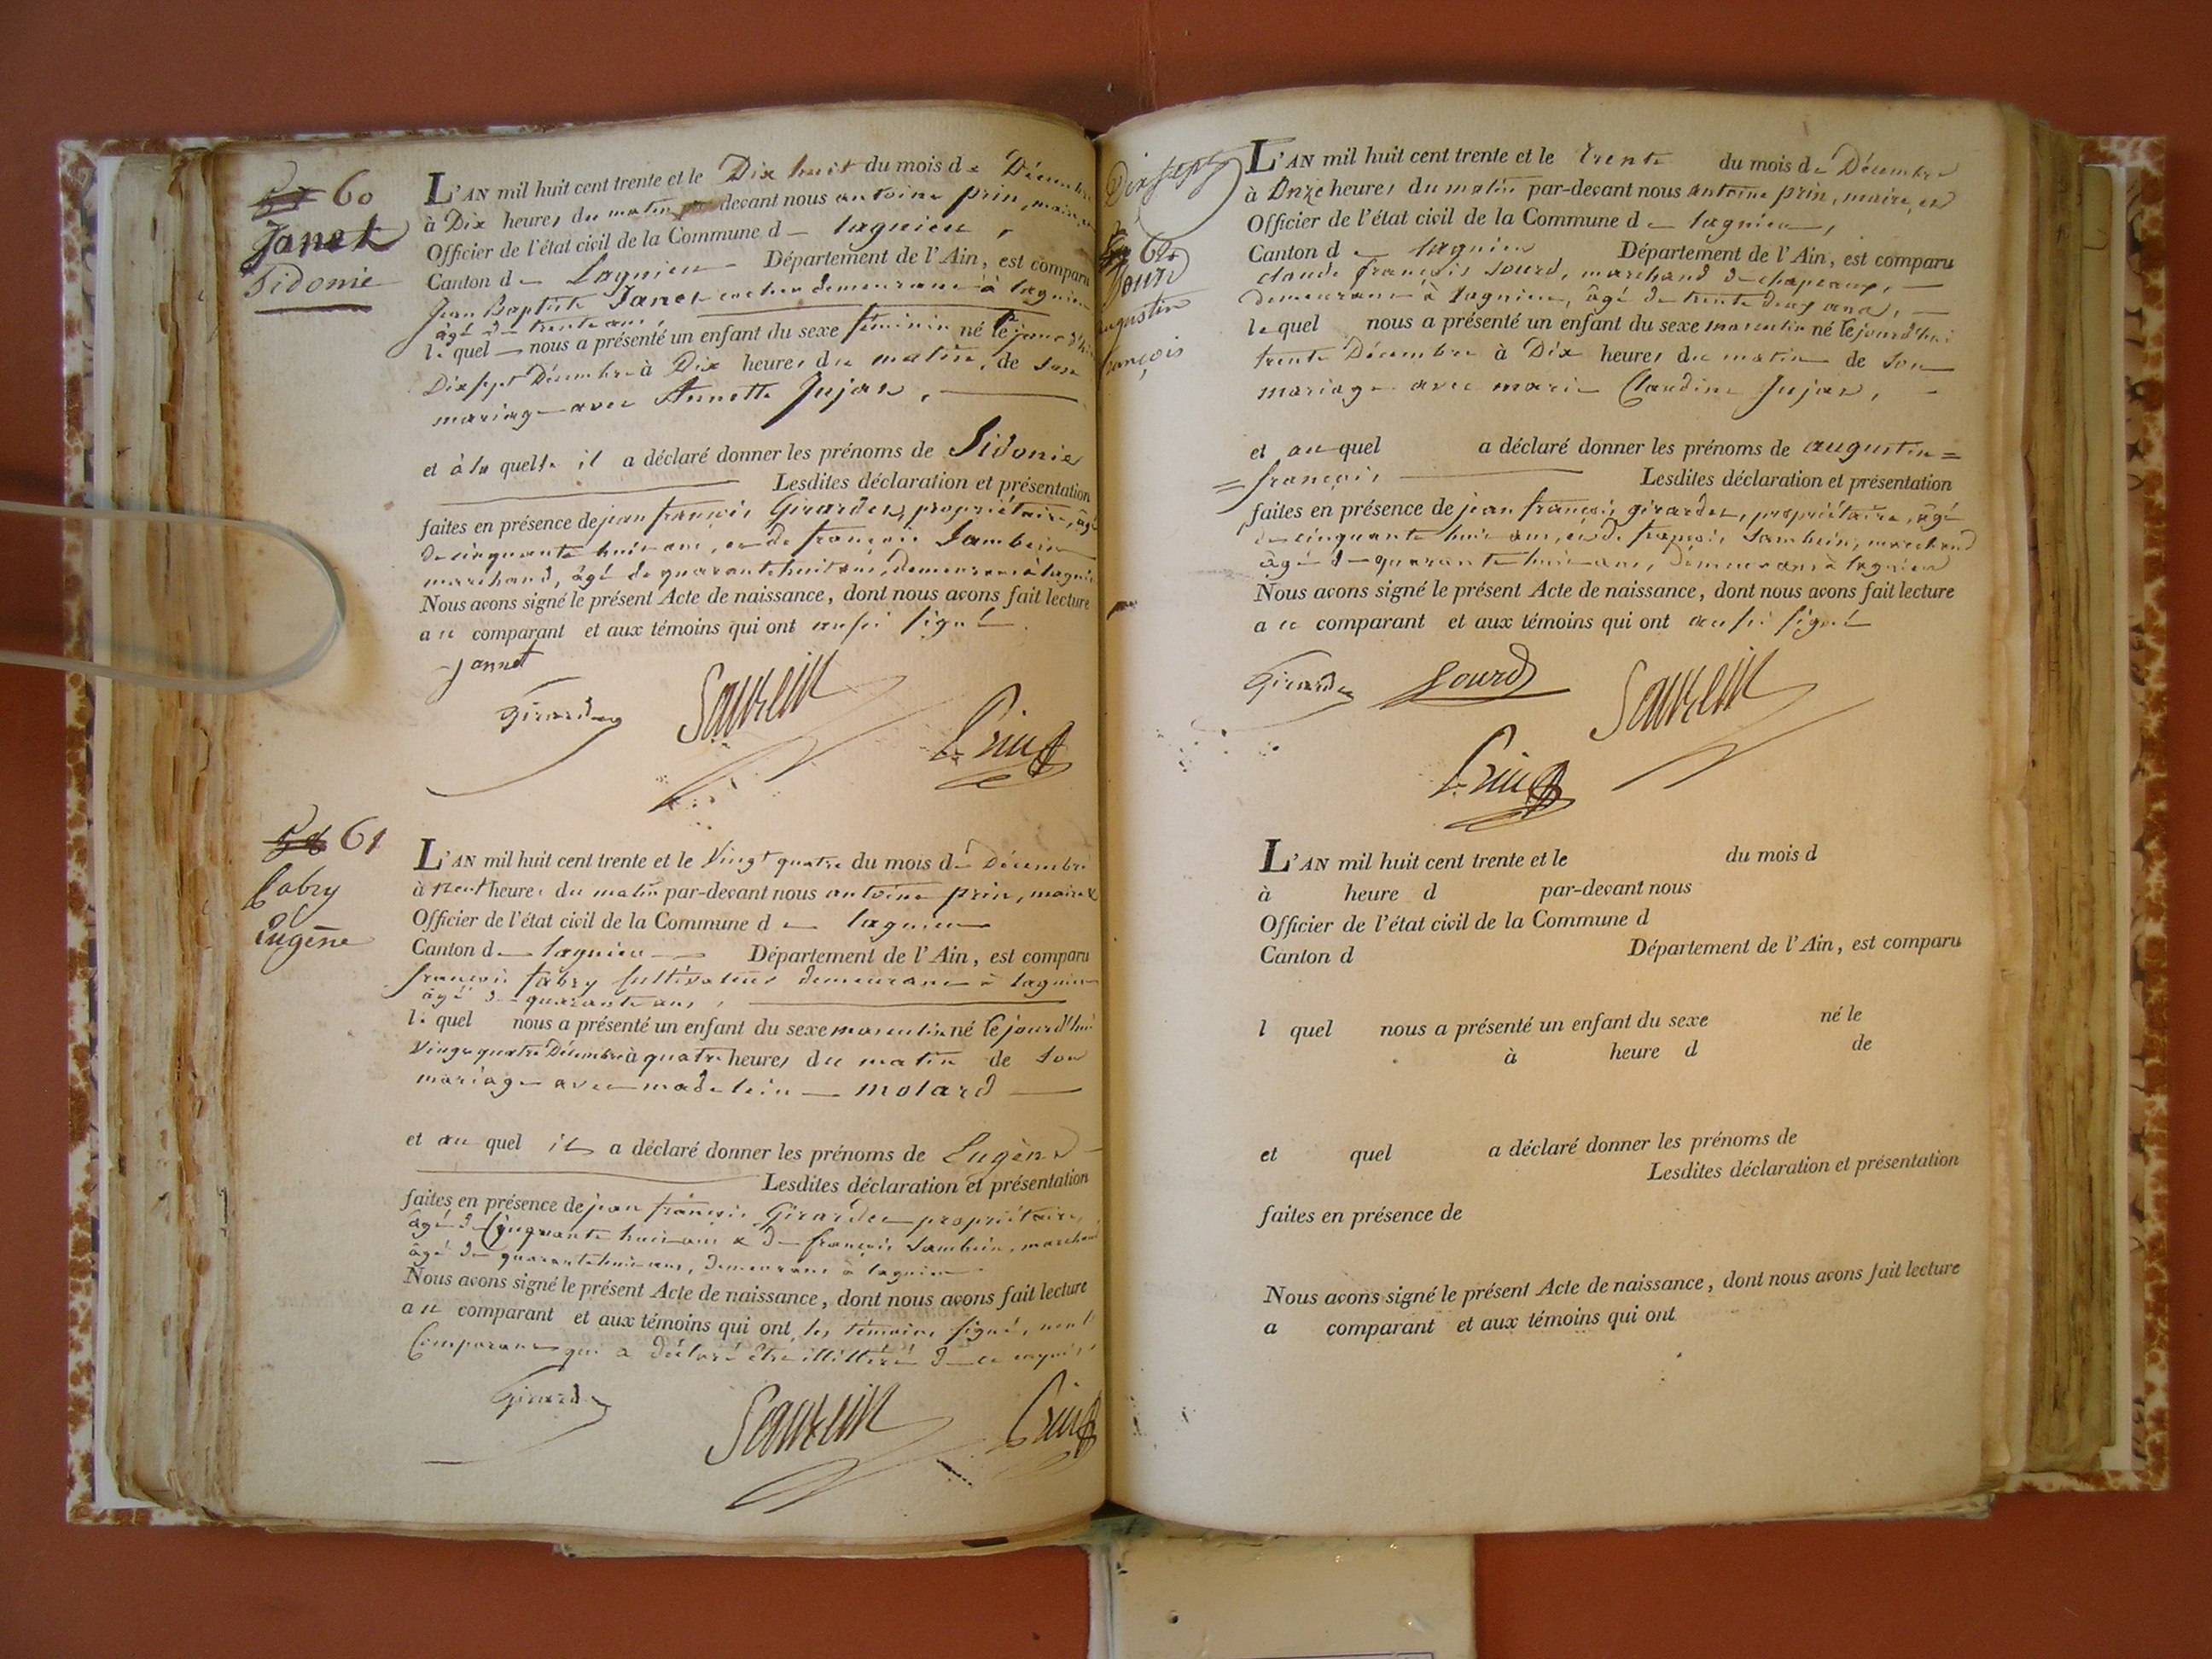 60
Janet
Sidonie
L'AN mil huit cent trente et le Dix huit du mois de Décembre
à Dix heures du matin par-devant nous antoine prin, maire
Officier de l'état civil de la Commune de lagnieu,
Canton de Lagnieu Département de l'Ain, est comparu
Jean Baptiste Janet cocher demeurant à lagnieu
âgé de trente ans,
lequel nous a présenté un enfant du sexe féminin né le
Dix sept Décembre à Dix heures du matin, de son
mariage avec Annette Jujar,
et à la quelle il a déclaré donner les prénoms de Sidonie
Lesdites déclaration et présentation
faites en présence de jean françois Girardet, propriétaire, âgé
de cinquante huit ans, et de françois Sambein
marchand, âgé de quarante huit ans, demeurant à lagnieu
Nous avons signé le présent Acte de naissance, dont nous avons fait lecture
au comparant et aux témoins qui ont aussi signé.
Jannet
Girardet
Prin
61
fabry
Eugène
L'AN mil huit cent trente et le Vingt quatre du mois de Décembre
à neuf heures du matin par-devant nous antoine prin, maire &
Officier de l'état civil de la Commune de lagnieu
Canton de lagnieu Département de l'Ain, est comparu
françois fabry cultivateur demeurant à lagnieu
âgé de quarante ans,
lequel nous a présenté un enfant du sexe masculin né le jourd'hui
Vingt quatre Décembre à quatre heures du matin de son
mariage avec madeleine molard
et au quel il a déclaré donner les prénoms de Eugène
Lesdites déclaration et présentation
faites en présence de jean françois Girardet propriétaire,
âgé de Cinquante huit ans & de françois Sambein, marchand
âgé de quarante huit ans, demeurant à lagnieu
Nous avons signé le présent Acte de naissance, dont nous avons fait lecture
au comparant et aux témoins qui ont, les témoins signé, non le
Comparant qui a déclaré être illittéré de ce enquis
Girardet
Prin
Dix sept
62
Sourd
augustin
françois
L'AN mil huit cent trente et le trente du mois de Décembre
à Onze heures du matin par-devant nous antoine prin, maire, et
Officier de l'état civil de la Commune de lagnieu,
Canton de lagnieu Département de l'Ain, est comparu
claude françois sourd, marchand de chapeaux,
demeurant à lagnieu, âgé de trente deux ans,
lequel nous a présenté un enfant du sexe masculin né le jourd'hui
trente Décembre à Dix heures du matin de son
mariage avec marie Claudine Jujar,
et au quel a déclaré donner les prénoms de augustin=
=françois Lesdites déclaration et présentation
faites en présence de jean françois girardet, propriétaire, âgé
de cinquante huit ans, et de françois Sambein, marchand
âgé de quarante huit ans, demeurant à lagnieu
Nous avons signé le présent Acte de naissance, dont nous avons fait lecture
au comparant et aux témoins qui ont aussi signé
Girardet
Sourd
Prin
L'AN mil huit cent trente et le du mois d
à heure d par-devant nous
Officier de l'état civil de la Commune d
Canton d Département de l'Ain, est comparu
l quel nous a présenté un enfant du sexe né le
à heure d de
et quel a déclaré donner les prénoms de
Lesdites déclaration et présentation
faites en présence de
Nous avons signé le présent Acte de naissance, dont nous avons fait lecture
a comparant et aux témoins qui ont